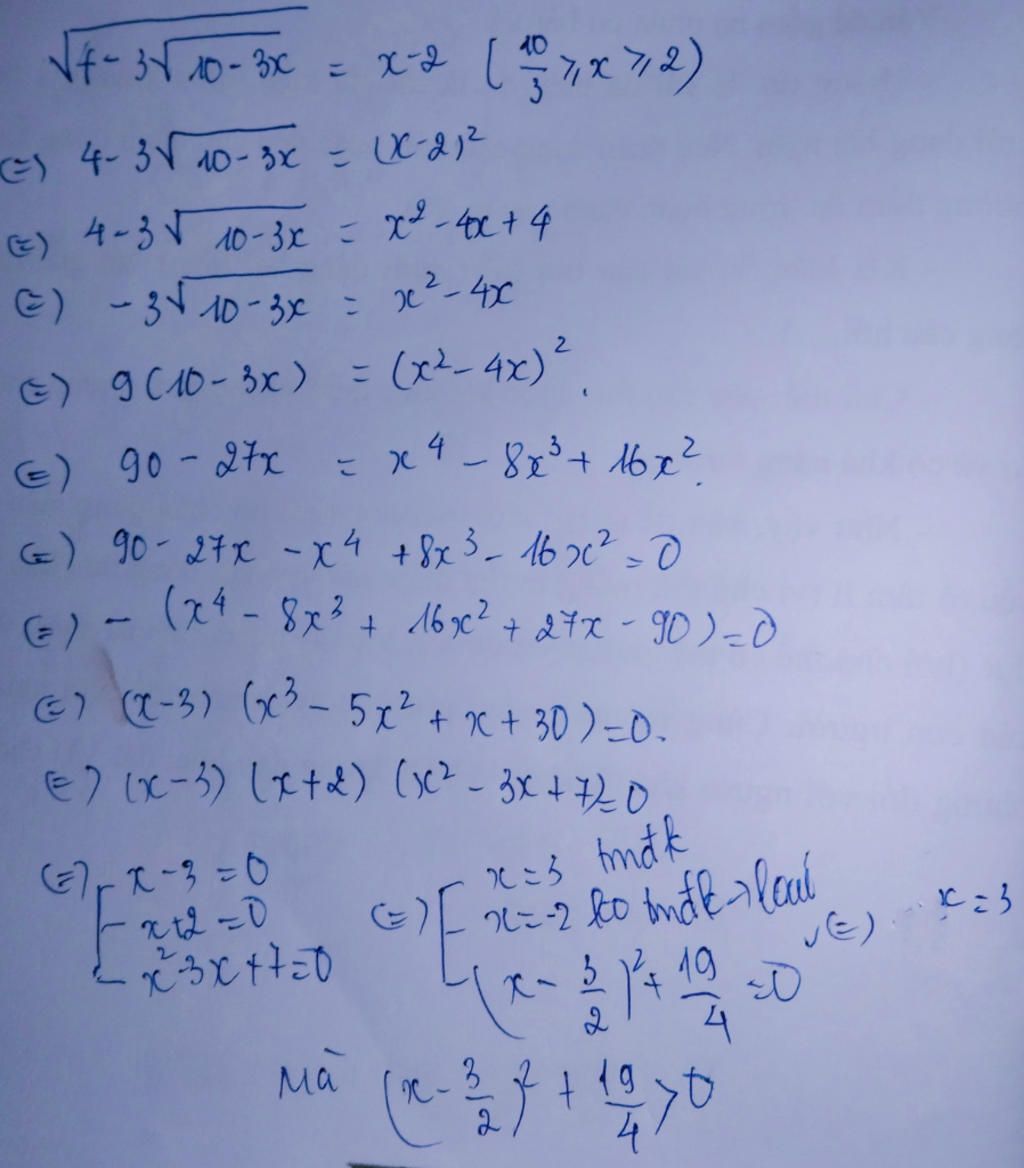 √(4-3√(10-3x)) = x-2 (10/3 ⩾ x ⩾ 2)
(=) 4-3√(10-3x) = (x-2)²
(=) 4-3√(10-3x) = x²-4x+4
(=) -3√(10-3x) = x²-4x
(=) 9(10-3x) = (x²-4x)².
(=) 90-27x = x⁴-8x³+16x².
(=) 90-27x-x⁴+8x³-16x²=0
(=) -(x⁴-8x³+16x²+27x-90)=0
(=) (x-3)(x³-5x²+x+30)=0.
(=) (x-3)(x+2)(x²-3x+7)=0
(=) [ x-3=0 (=) [ x=3 tmđk
x+2=0 x=-2 ko tmđk → loại (=) x=3
x²-3x+7=0 (x-3/2)²+19/4=0
Mà (x-3/2)²+19/4>0